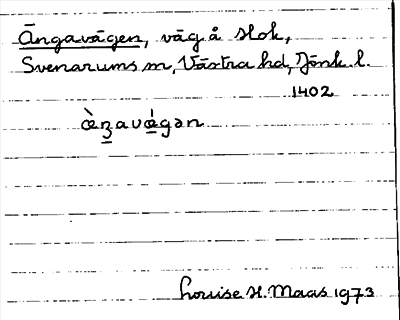 Ängavägen, väg å Hok,
Svenarums sn, Västra hd, Jönk. l.
1402
Louise H. Maas 1973